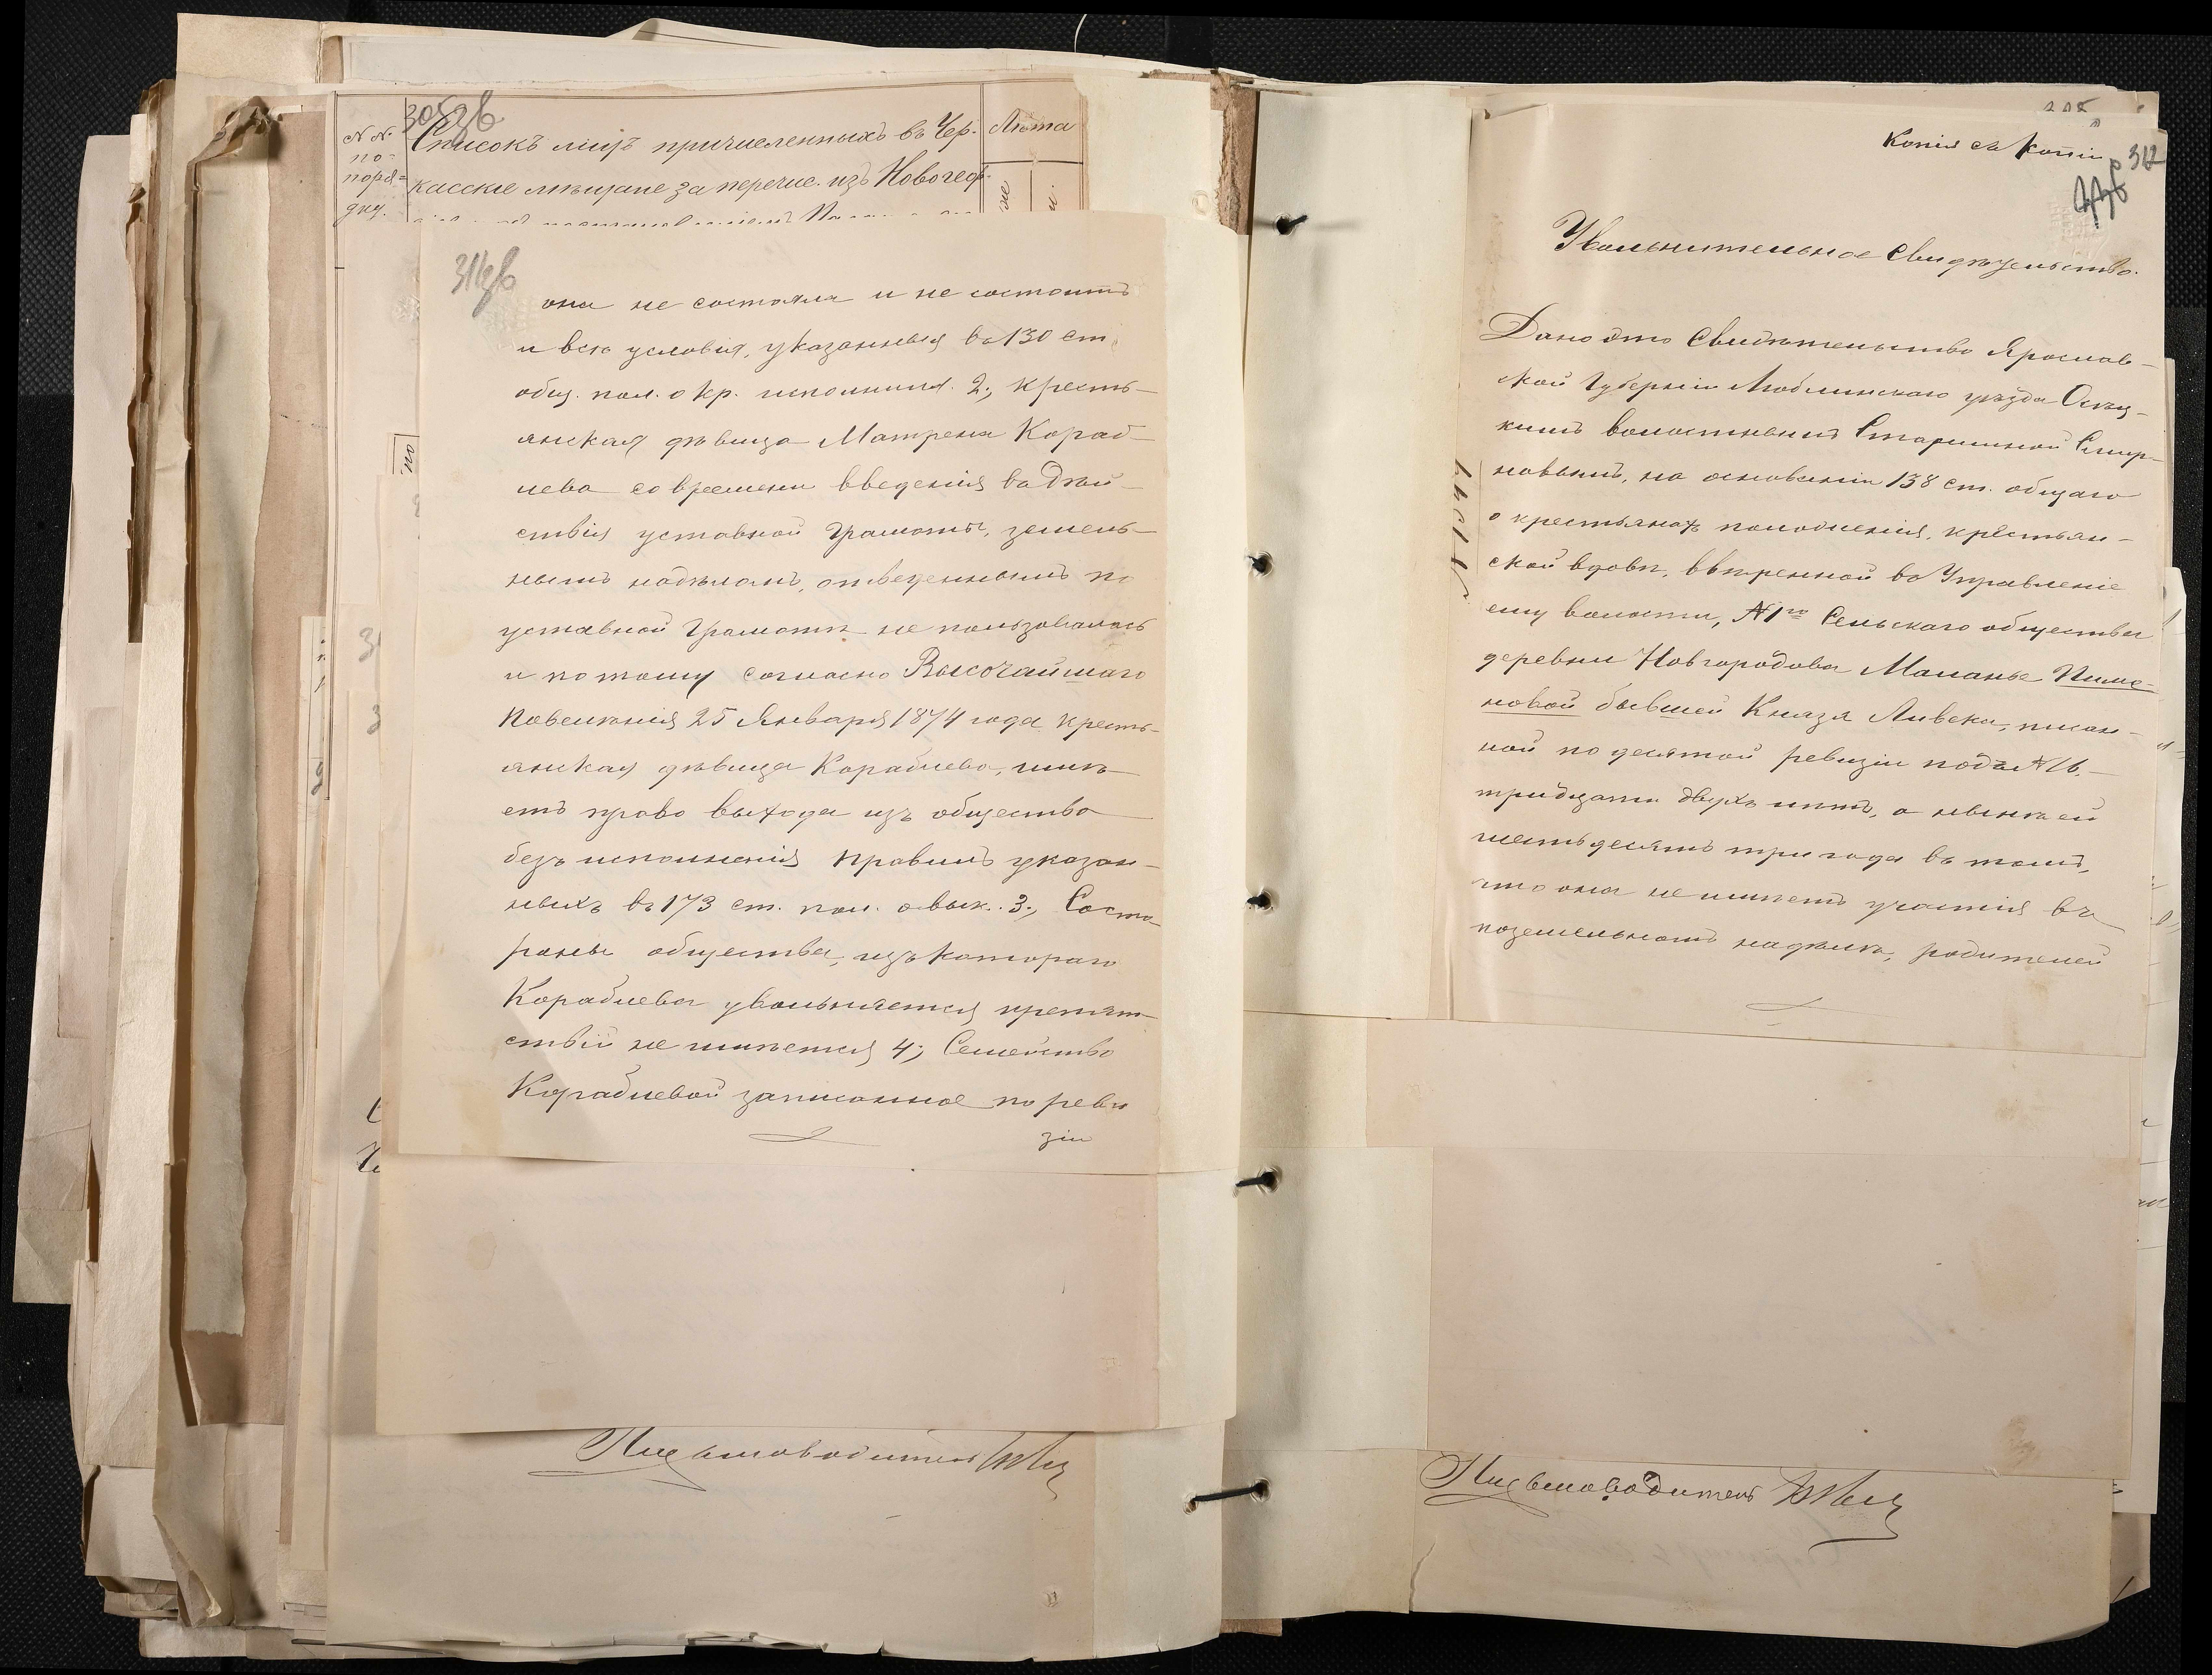 305об
№№ по-поряд-дку.
Списокъ лицъ причисленныхъ въ Чер-
касскіе мѣщане за перечис. изъ Новогеор-
Лѣта
311об
она не состояла и не состоитъ
и всѣ условія, указанныя въ 130 ст.
общ. пол. о кр. исполнила. 2; кресть-
янская дѣвица Матрена Кораб-
лева со времени введенія въ дѣй-
ствія уставной грамоты, земель-
нымъ надѣломъ, отведеннымъ по
уставной грамотѣ не пользовалась
и потому согласно Высочайшаго
Повелѣнія 25 Января 1874 года кресть-
янская дѣвица Кораблева, имѣ-
етъ право выхода изъ общества
безъ исполненія правилъ указан-
ныхъ въ 173 ст. пол. о вык. 3; Со сто-
роны общества, изъ котораго
Кораблева увольняется препят-
ствій не имѣется 4; Семейство
Кораблевой записанное по реви
зіи
Письмоводитель
Копія съ копіи
312
Увольнительное свидѣтельство.
Дано это свидѣтельство Ярослав-
ской Губерніи Любимскаго уѣзда Осец-
кимъ волостнымъ Старшиной Смир-
новымъ, на основаніи 138 ст. общаго
о крестьянахъ положенія, крестьян-
ской вдовѣ, ввѣренной въ Управленіе
ему волости, №1го Сельскаго общества
деревни Новгородова Маланье Пиме-
новой бывшей Князя Ливена, писан-
ной по десятой ревизіи подъ №16.
тридцати двухъ лѣтъ, а нынѣ ей
шестьдесятъ три года въ томъ,
что она не имѣетъ участія въ
поземельномъ надѣлѣ, родителей
Письмоводитель